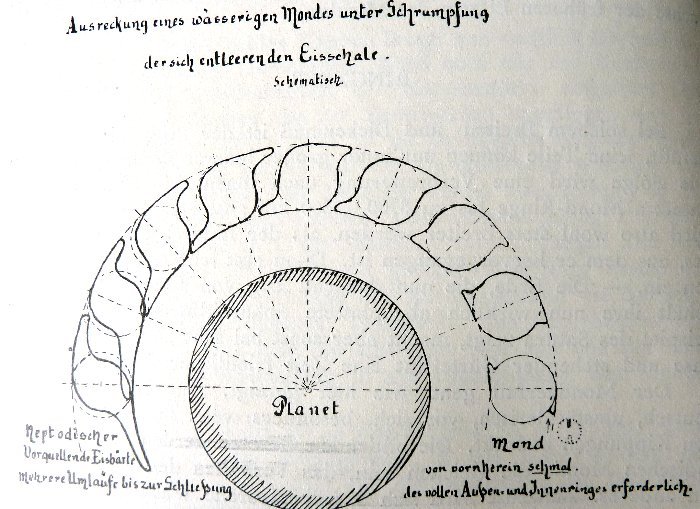 Ausreckung eines wässerigen Mondes unter Schrumpfung
der sich entleerenden Eisschale.
Schematisch.
Planet
Neptodischer
Vorquellende Eisbärte
Mehrere Umläufe bis zur Schließung
Mond
von vornherein schmal.
des vollen Außen- und Innenringes erforderlich.